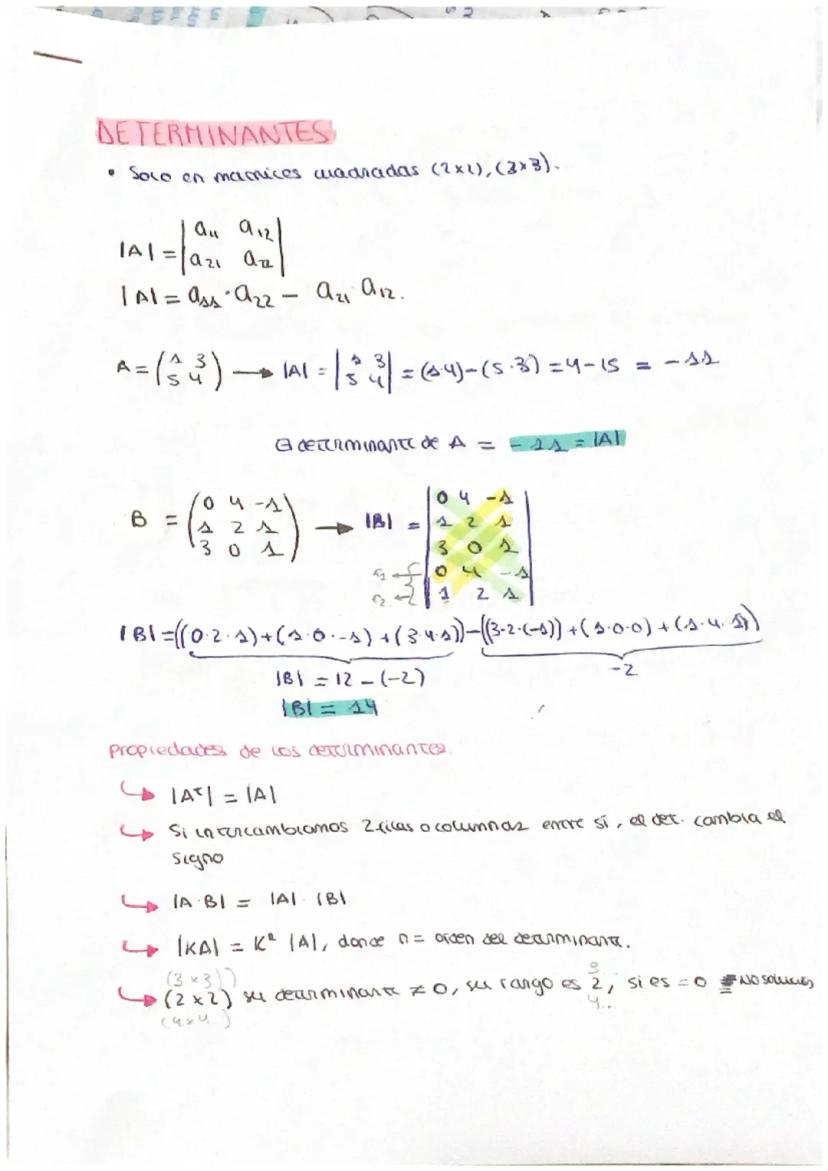 DETERMINANTES
• Solo en matrices cuadradas (2x2), (3x3).
|A| = | a11 a12 |
| a21 a22 |
|A| = a11 · a22 − a21 a12.
A = (1 3
5 4) → |A| = |1 3
5 4| = (1·4) − (5·3) = 4 − 15 = −11
El determinante de A = −11 = |A|
B = (0 4 −1
1 2 1
3 0 1) → |B| = |0 4 −1
1 2 1
3 0 1
0 4 −1
1 2 1|
|B| = ((0·2·1) + (1·0·−1) + (3·4·1)) − ((3·2·(−1)) + (1·0·0) + (1·4·1))
|B| = 12 − (−2)
−2
|B| = 14
Propiedades de los determinantes
↳ |Aᵗ| = |A|
↳ Si intercambiamos 2 filas o columnas entre sí, el det. cambia el
signo
↳ |A·B| = |A|·|B|
↳ |KA| = Kⁿ |A|, donde n = orden del determinante.
(3x3) 3
↳ (2x2) su determinante ≠ 0, su rango es 2, si es = 0 NO
(4x4) 4..